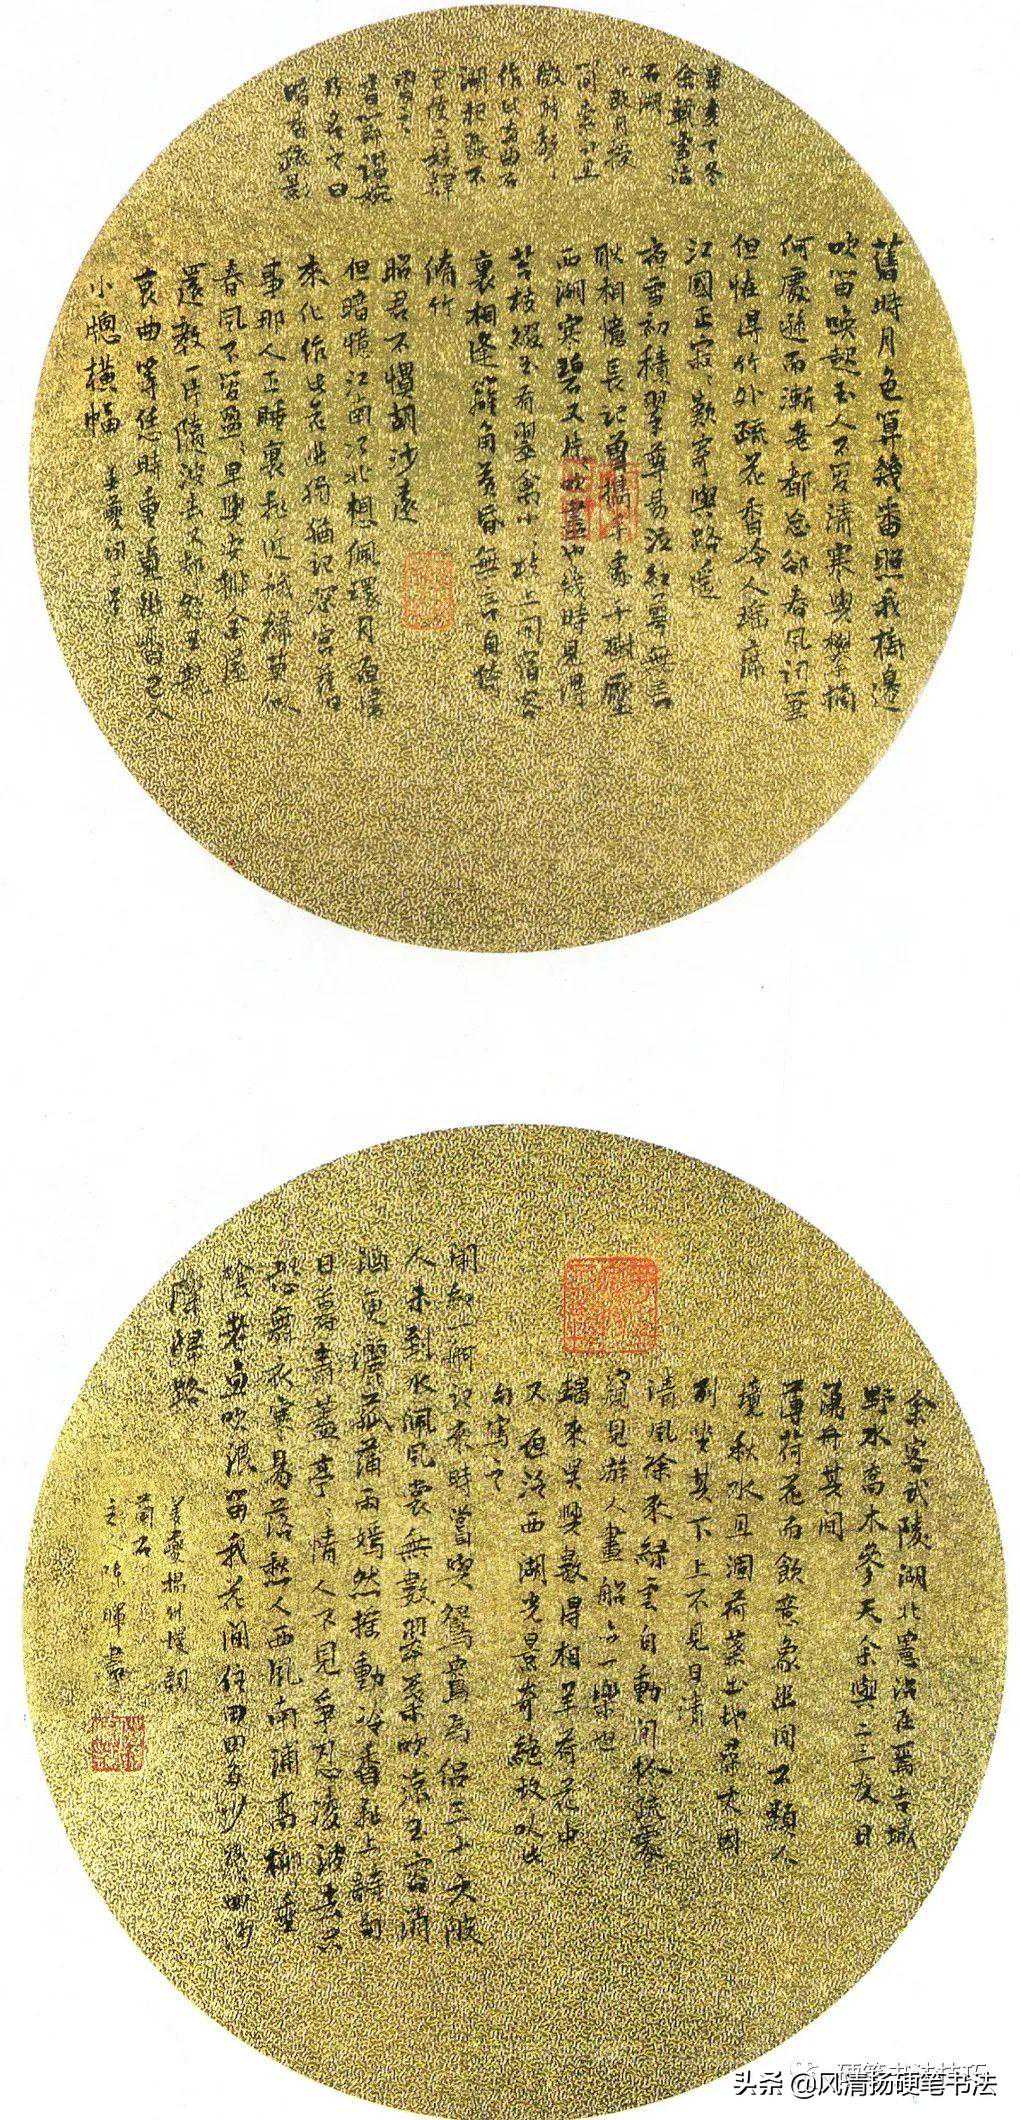 辛亥之冬
余載雪詣
石湖
止既月授
簡索句且
徵新聲
作此兩曲石
湖把玩不
已使二妓肄
習之
音節諧婉
乃名之曰
暗香疏影
舊時月色算幾番照我梅邊
吹笛喚起玉人不管清寒與攀摘
何遜而漸老都忘卻春風詞筆
但怪得竹外疏花香冷入瑤席
江國正寂寂歎寄與路遙
夜雪初積翠尊易泣紅萼無言
耿相憶長記曾攜手處千樹壓
西湖寒碧又片片吹盡也幾時見得
苔枝綴玉有翠禽小小枝上同宿客
裏相逢籬角黃昏無言自倚
脩竹
昭君不慣胡沙遠
但暗憶江南江北想佩環月夜歸
來化作此花幽獨猶記深宮舊日
事那人正睡裏飛近蛾綠莫似
春風不管盈盈早與安排金屋
還教一片隨波去又卻怨玉龍
哀曲等恁時重覓幽香已入
小牕橫幅 姜夔詞
余客武陵湖北憲治在焉古城
野水喬木參天余與二三友日
蕩舟其間
薄荷花而飲意象幽閒不類人
境秋水且涸荷葉出地尋丈因
列坐其下上不見日清
清風徐來綠雲自動間於疏處
窺見遊人畫船亦一樂也
朅來吳興數得相羊荷花中
又夜泛西湖光景奇絕故以此
句寫之
鬧紅一舸記來時嘗與鴛鴦為侶三十六陂
人未到水佩風裳無數翠葉吹涼玉容消
酒更灑菰蒲雨嫣然搖動冷香飛上詩句
日暮青蓋亭亭情人不見爭忍凌波去只
恐舞衣寒易落愁人西風南浦高柳垂
陰老魚吹浪留我花間住田田多少幾回沙
際歸路
姜夔揚州慢詞
蘭石
頭条 @风清扬硬笔书法
硬笔书法技巧